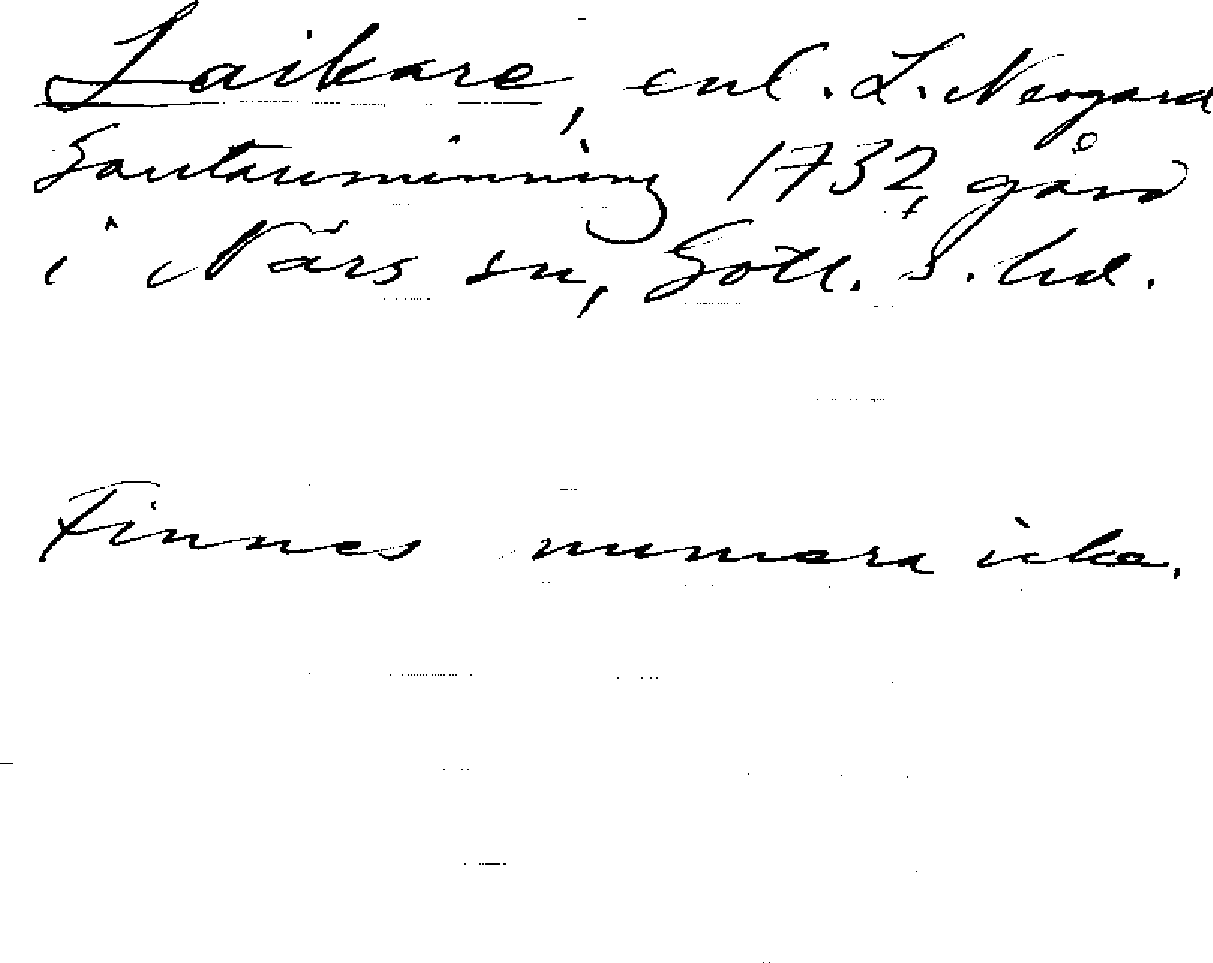 Laikare, enl. L. Neogard
Gautauminning 1732, gård
i När sn, Gotl. S. hd.
Finnes numera icke.